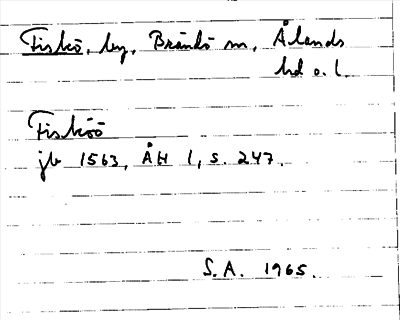 Fiskö, by, Brändö sn, Ålands
hd o. l.
Fisköö
jb 1563, ÅH 1, s. 247.
S.A. 1965.